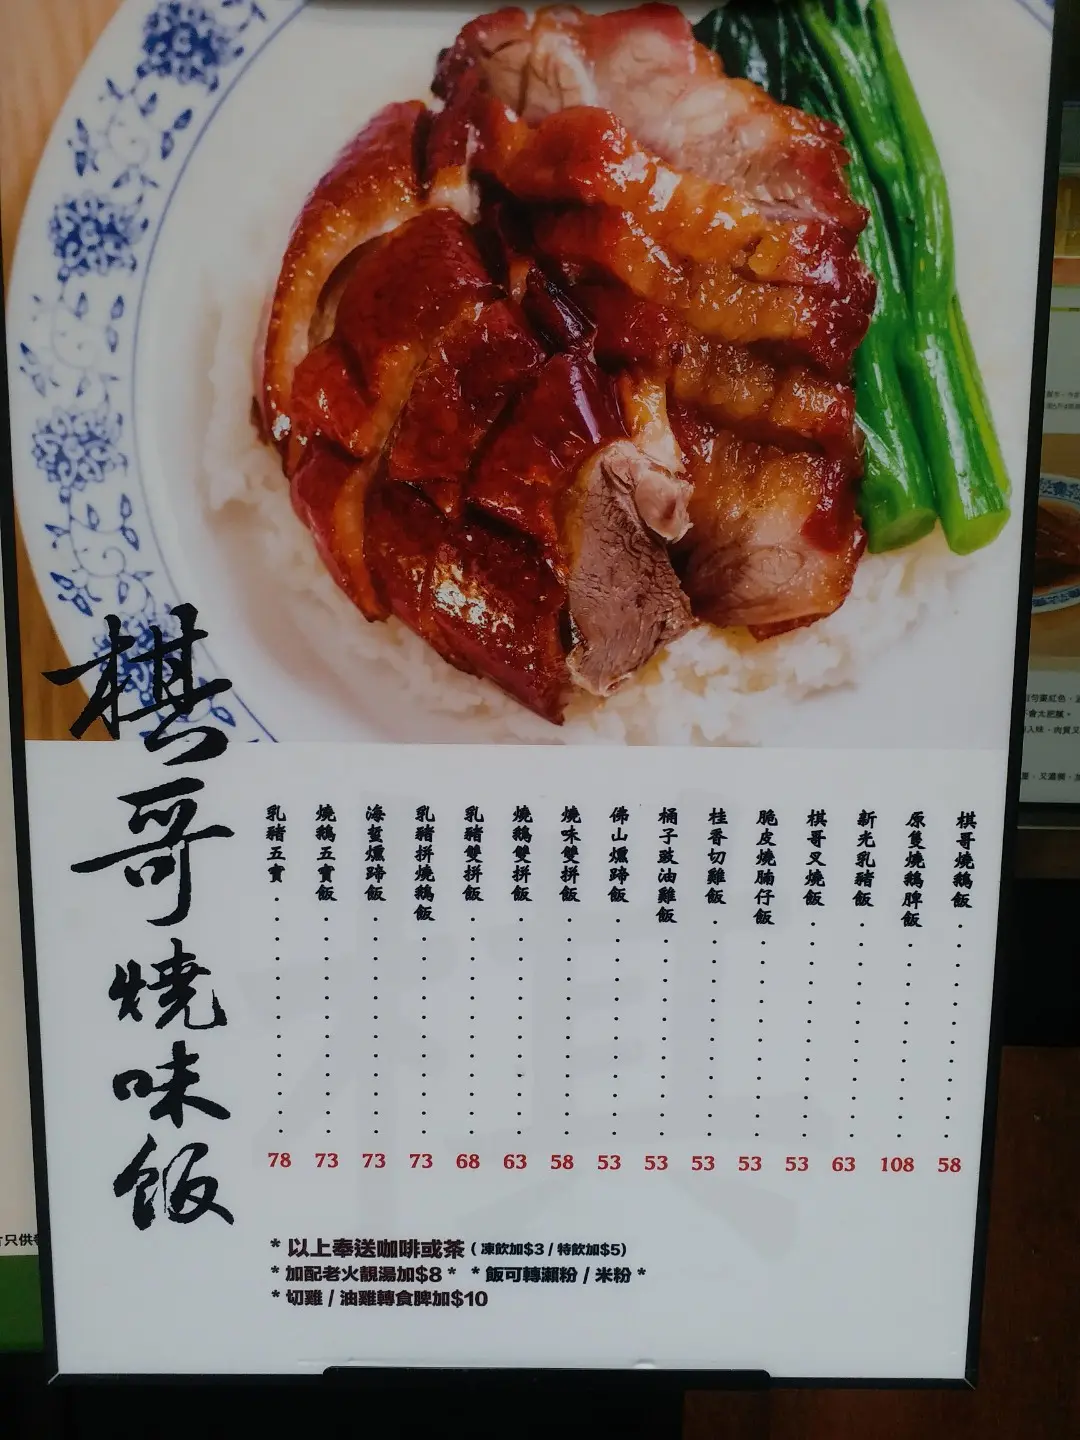 棋哥燒味飯
棋哥燒鵝飯 58
原隻燒鵝脾飯 108
新光乳豬飯 63
棋哥叉燒飯 53
脆皮燒腩仔飯 53
桂香切雞飯 53
桶子豉油雞飯 53
佛山燻蹄飯 53
燒味雙拼飯 58
燒鵝雙拼飯 63
乳豬雙拼飯 68
乳豬拼燒鵝飯 73
海蜇燻蹄飯 73
燒鵝五寶飯 73
乳豬五寶 78
* 以上奉送咖啡或茶 ( 凍飲加$3 / 特飲加$5)
* 加配老火靚湯加$8 * * 飯可轉瀨粉 / 米粉 *
* 切雞 / 油雞轉食脾加$10
片只供
勻棗紅色、
會太肥膩。
入味，肉質又